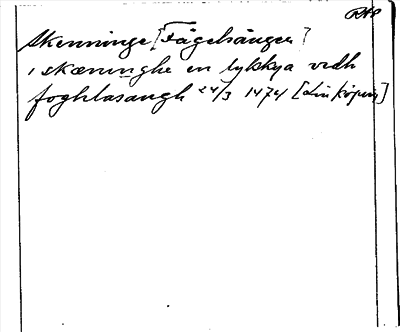 RAP
Skenninge [Fågelsången]
i skæninghe en lykkya vedh
foghlasangh 24/3 1474 [Linköping]